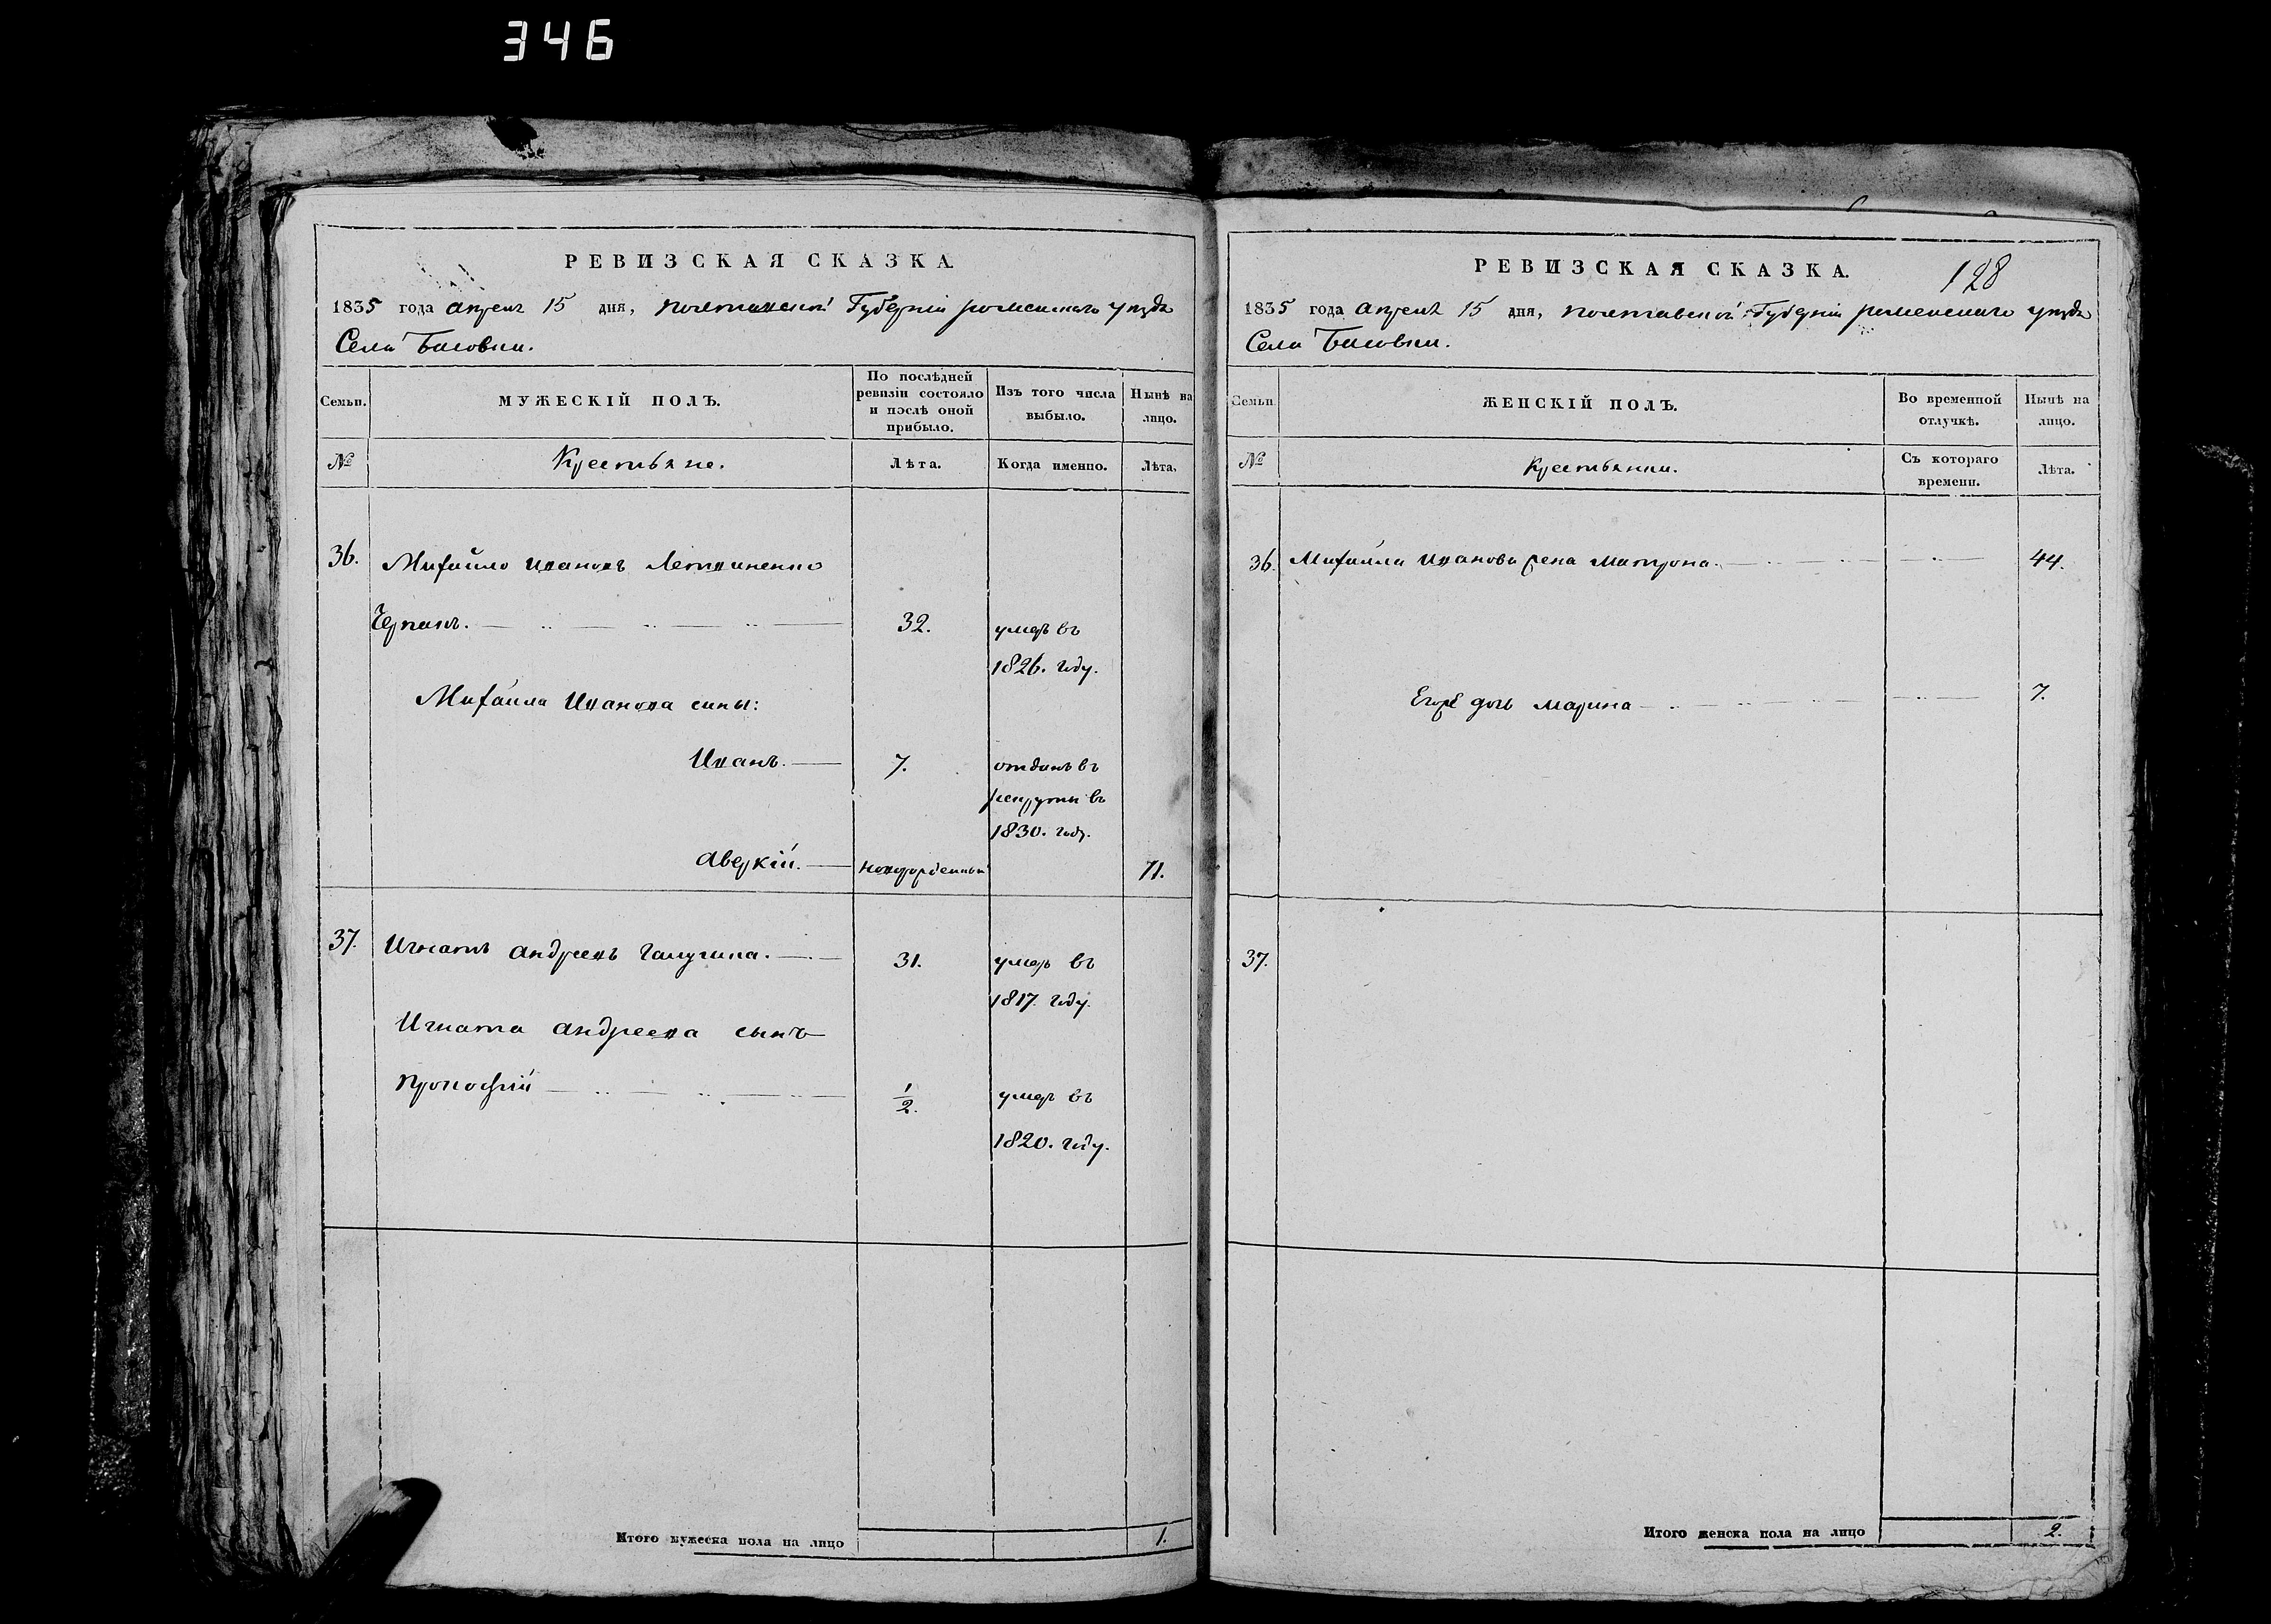 346
РЕВИЗСКАЯ СКАЗКА.
1835 года апреля 15 дня, полтавской Губерніи роменскаго уезда
Села Басовки.
Семьи.
МУЖЕСКІЙ ПОЛЪ.
По послѣдней ревизіи состояло и послѣ оной прибыло.
Изъ того числа выбыло.
Нынѣ на лицо.
№
Крестьяне.
Лѣта.
Когда именно.
Лѣта.
36.
Михайло Ивановъ
32.
умеръ въ
1826. году.
Михайла Иванова сины:
Иванъ.
7.
отданъ въ
рекруты въ
1830. году.
Аверкій.
новорожденный
11.
37.
Игнатъ Андреевъ Галушка.
31.
умеръ въ
1817. году.
Игната Андреева сынъ
Прокофій
1/2.
умеръ въ
1820. году.
Итого мужеска пола на лицо
1.
128
РЕВИЗСКАЯ СКАЗКА.
1835 года апреля 15 дня, полтавской Губерніи роменскаго уезда
Села Басовки.
Семьи
ЖЕНСКІЙ ПОЛЪ.
Во временной отлучкѣ.
Нынѣ на лицо.
№
Крестьянки.
Съ котораго времени.
Лѣта.
36.
Михайла Иванова жена Матрона.
44.
Егоже дочь Марина
7.
37.
Итого женска пола на лицо
2.